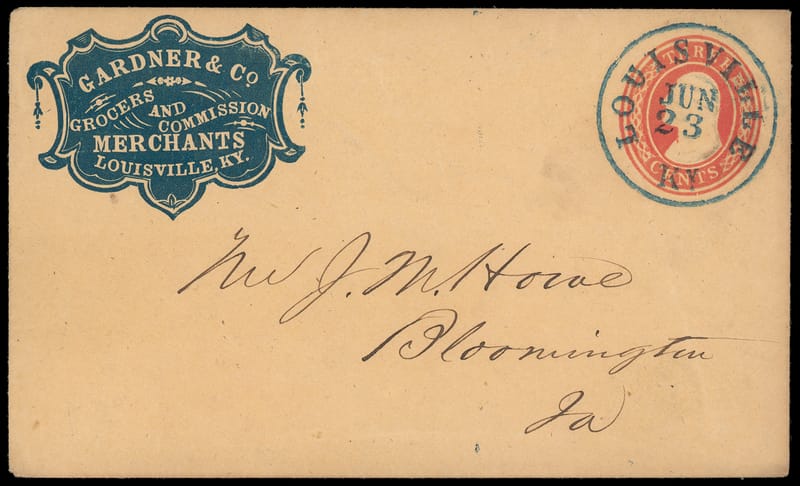 GARDNER & Co.
GROCERS AND COMMISSION
MERCHANTS
LOUISVILLE, KY.
LOUISVILLE KY
JUN
23
THREE
CENTS
J. M. Howe
Bloomington
Ia